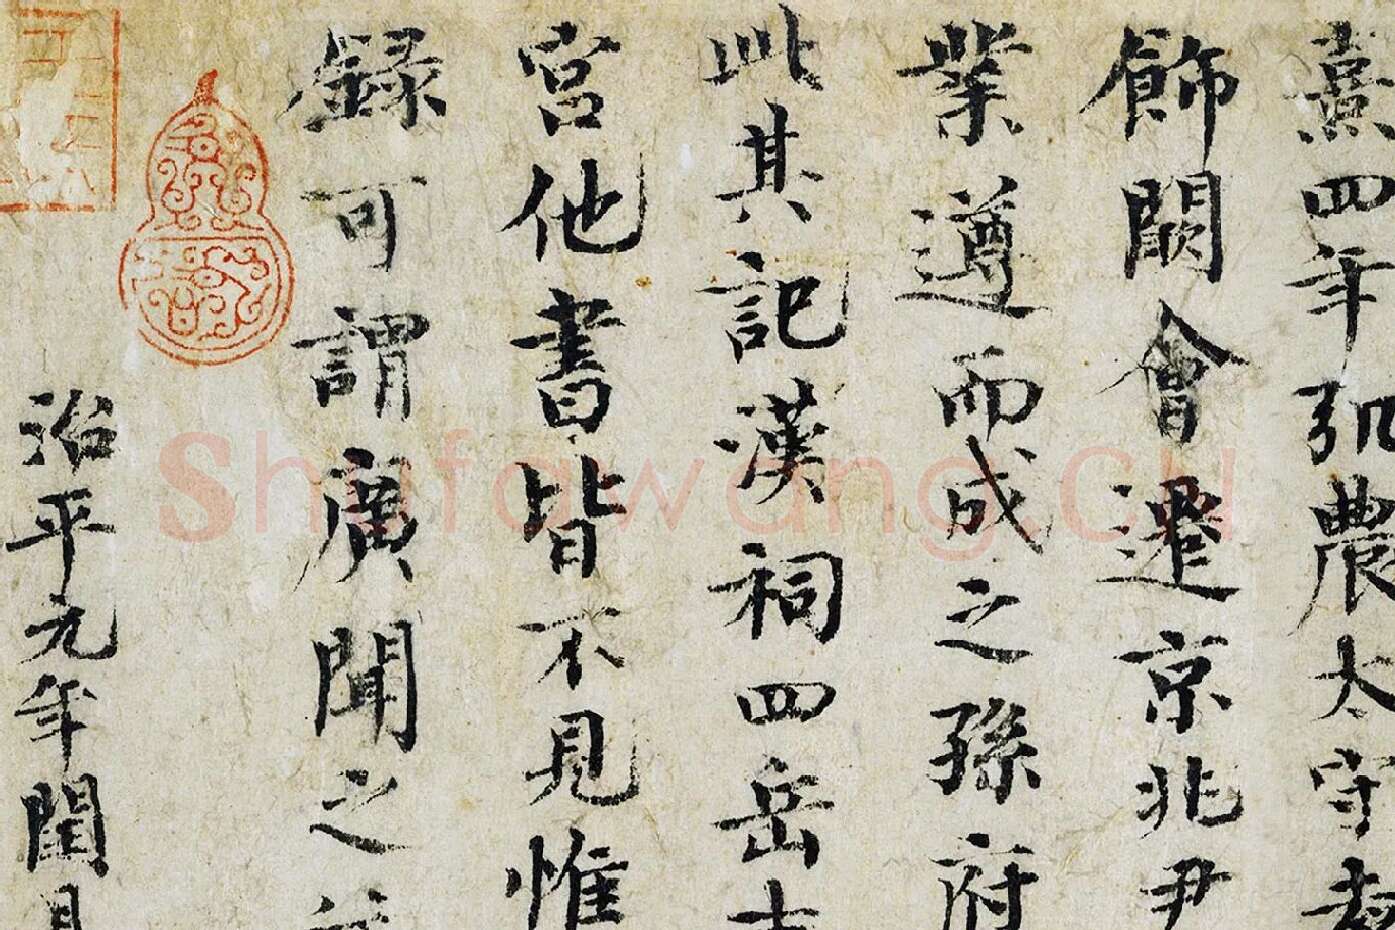 熹四年弘農太守袁
飾闕會遷京兆尹
業遵而成之孫府
此其記漢祠四岳
宮他書皆不見惟
錄可謂廣聞之
治平元年閏月
shufawang.cn